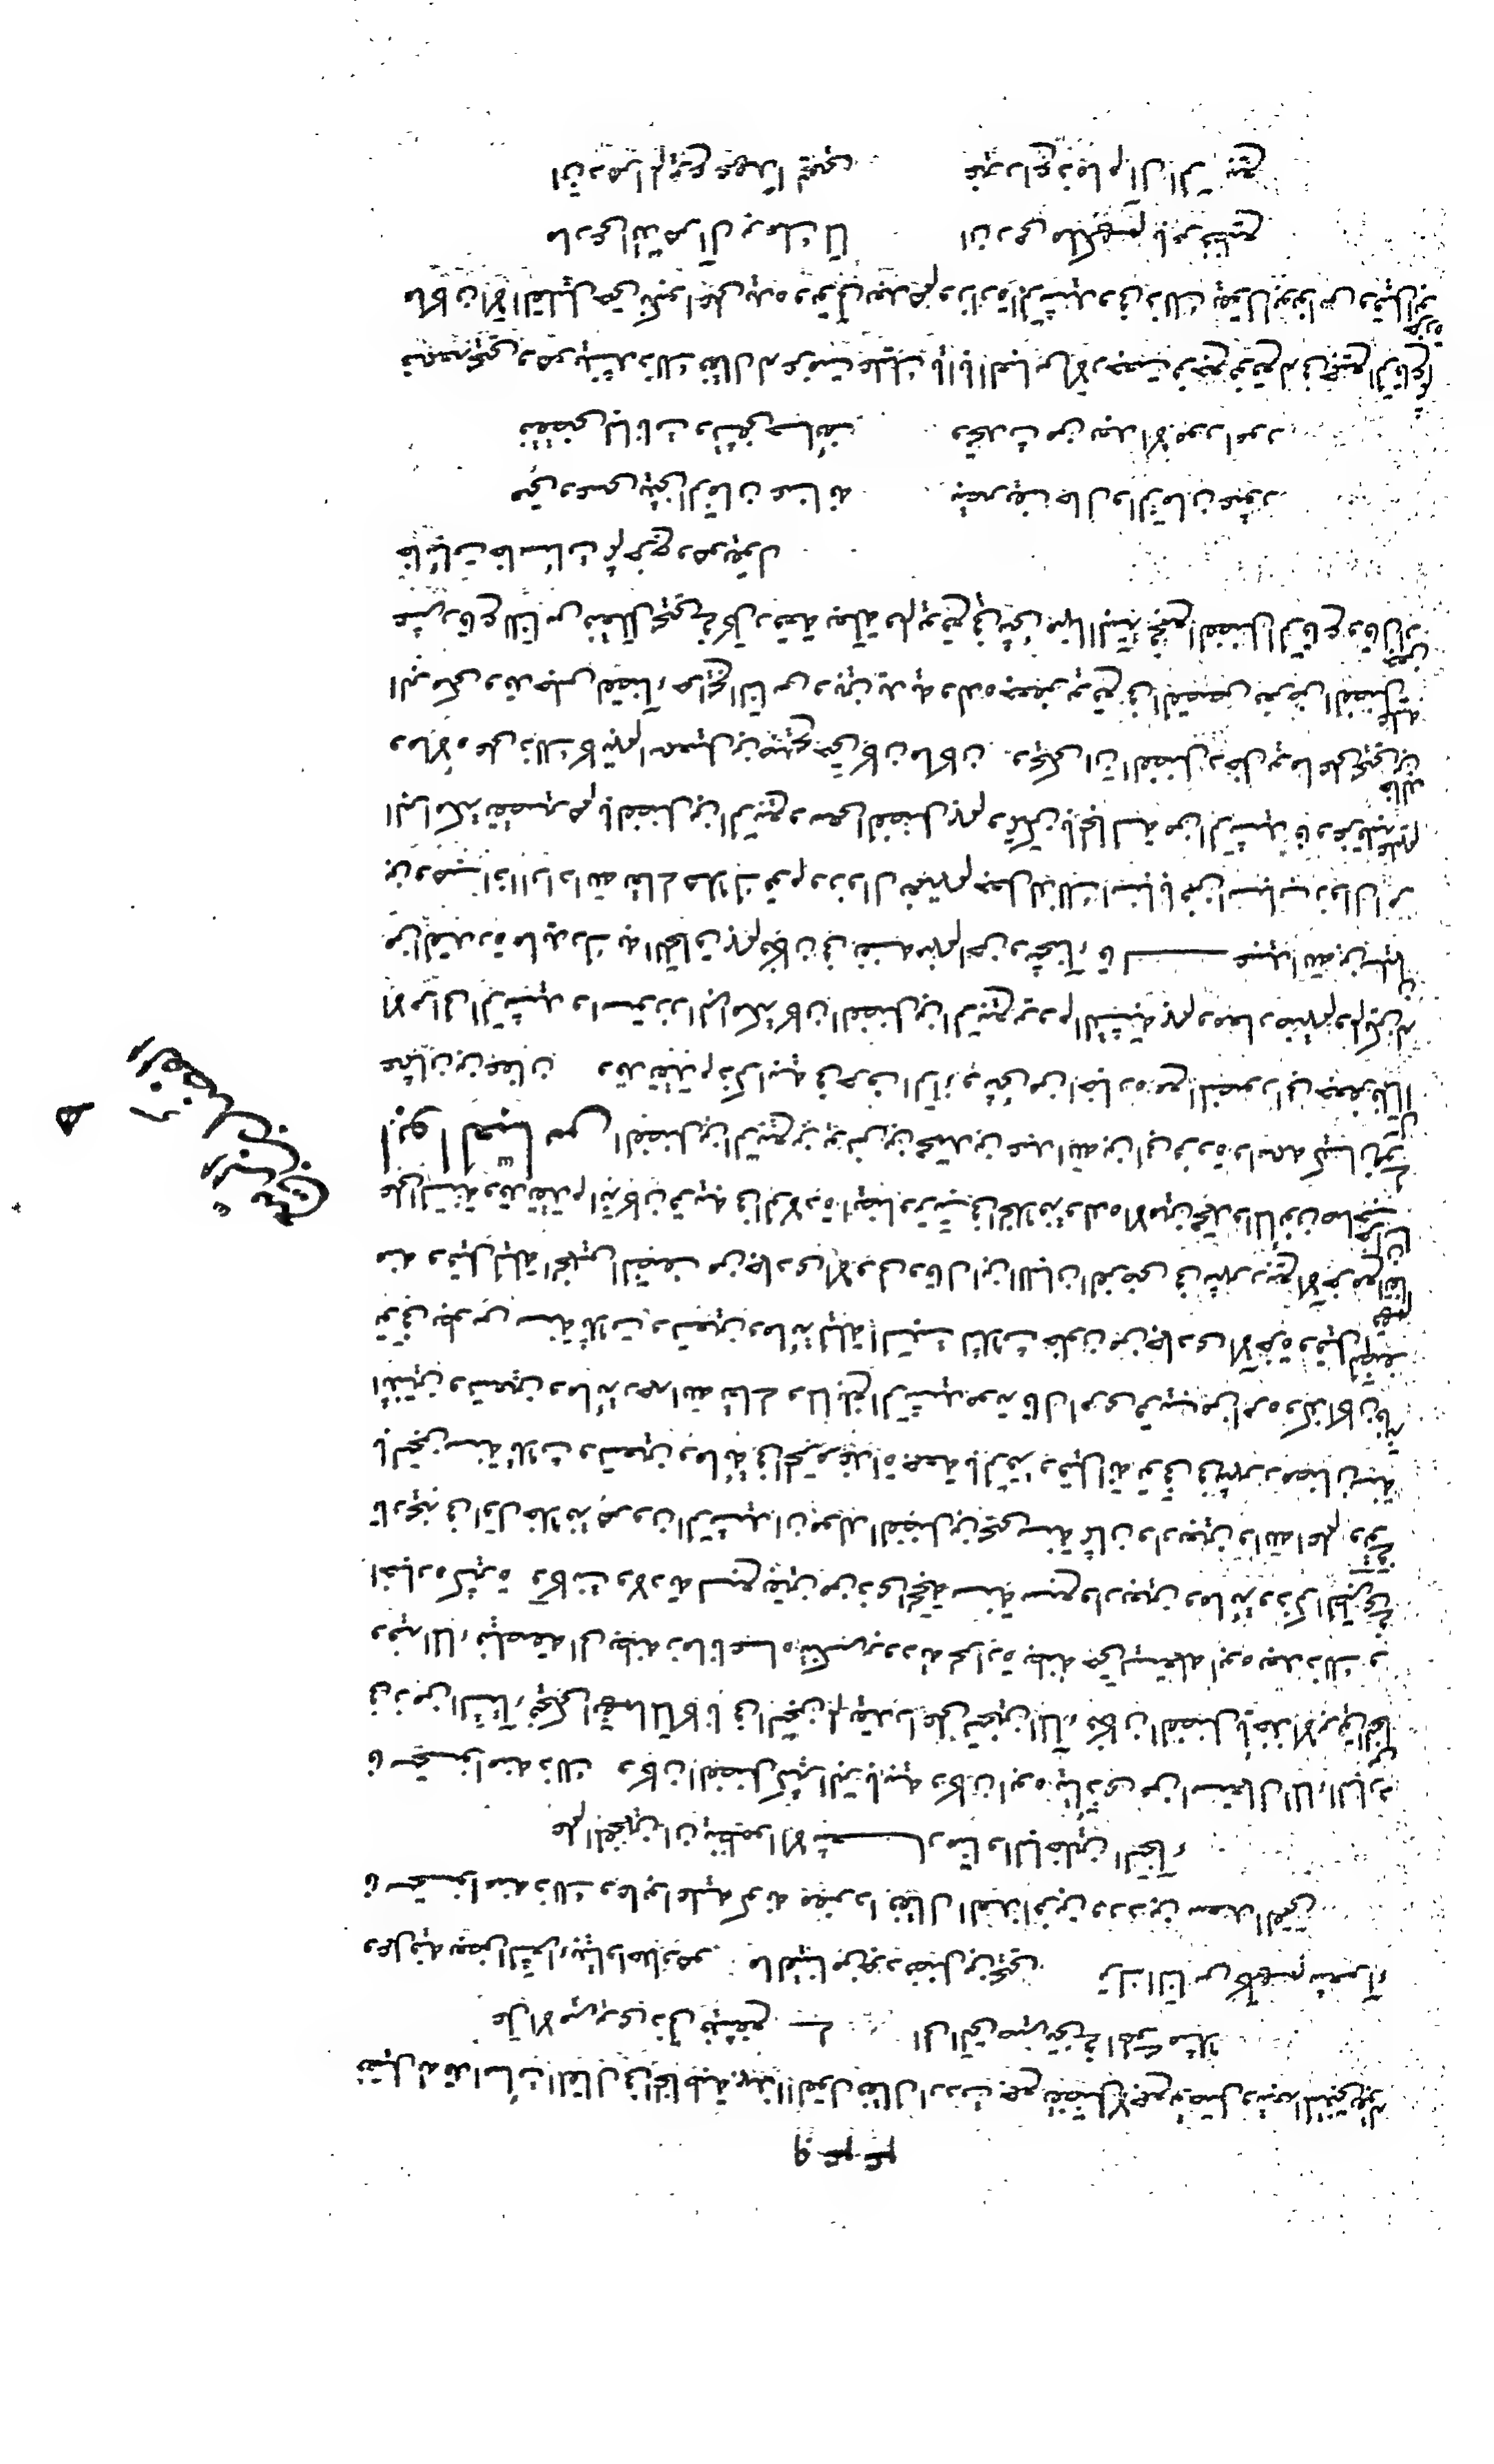 وعزا فيه بعض الشعراء بيتا واحدا وهو ما لقينا من جود فضل بن يحيى ترك الناس كلهم شعراء
فاستحسنوا منه ذلك وعابوا عليه كونه مفردا فقال العذافر بن ورد بن سعد القمي
علم المفحمين ان ينظموا الاشعار منا والباخلين السخاء
فاستحسنوا منه ذلك وكان الفضل كثير البر بابيه وكان ابوه يتاذى من استعمال الماء البارد
في زمن الشتاء فيحكى انهما لما كانا في السجن لم يقدرا على تسخين الماء فكان الفضل ياخذ الابريق النحاس
وفيه الماء فيلصقه الى بطنه زمانا عساه تنكسر برودته بحرارة بطنه حتى يستعمله ابوه بعد ذلك و
اخباره كثيرة وكانت ولادته لسبع بقين من ذي الحجة سنة سبع واربعين ومائة وذكر الطبري في
تاريخه في اول خلافة هرون الرشيد ان مولد الفضل بن يحيى سنة ثمان واربعين والله اعلم وتوفي
بالسجن سنة ثلاث وتسعين ومائة في المحرم غداة جمعة بالرقة وقيل انه توفي في شهر رمضان سنة
اثنتين وتسعين ومائة رحمه الله تعالى ولما بلغ الرشيد موته قال امري قريب من امره وكذا كان فانه
توفي بطوس سنة ثلاث وتسعين ومائة ليلة السبت لثلاث خلون من جمادى الآخرة وقيل
منه وقيل ليلة الخميس النصف من جمادى الاولى وقال ابن اللبان الفرضي في شهر ربيع الآخر مع اتفاقهم
على السنة وقد تقدم انه كان قريبه في الولادة ايضا في الخلافة ولده الامين محمد والمامون صاحب
ابو العباس الفضل بن الربيع بن يونس بن محمد بن عبد الله بن ابي فروة واسمه كيسان مولى
عثمان بن عفان وقد تقدم ذكر ابيه في حرف الراء وشيء من اخباره مع المنصور ابي جعفر فلما
آل الامر الى الرشيد واستوزر البرامكة كان الفضل بن الربيع يروم التشبه بهم ومعارضتهم ولم يكن له
من القدرة ما يدرك به اللحاق بهم فكان في نفسه منهم احن وشحناء قال عبيد الله بن سليمان
بن وهب اذا اراد الله تعالى هلاك قوم وزوال نعمتهم جعل لذلك اسبابا فمن اسباب زوال امر
البرامكة تقصيرهم بالفضل بن الربيع وسعي الفضل بهم وتمكن بالمجالسة من الرشيد فاوغر قلبه عليهم
ومالاه على ذلك كاتبهم اسمعيل بن صبيح حتى كان ما كان ويحكى ان الفضل دخل يوما على يحيى بن خالد
البرمكي وقد جلس لقضاء حوائج الناس وبين يديه ولده جعفر يوقع في القصص فعرض الفضل عليه
عشر رقاع للناس فتعلل يحيى في كل رقعة بعلة ولم يوقع في شيء منها البتة فجمع الفضل الرقاع وقال ارجعن
خائبات خاسئات ثم خرج وهو يقول
عسى وعسى يثني الزمان عنانه بتصريف حال والزمان عثور
فتقضى لبانات وتشفى حسائف وتحدث من بعد الامور امور
فسمعه يحيى وهو ينشد ذلك فقال له عزمت عليك يا ابا العباس الا رجعت فرجع فوقع له في جميع الرقاع ثم
ما كان الا القليل حتى نكبوا على يده وتولى بعدهم وزارة الرشيد وفي ذلك يقول ابو نواس وقيل ابو حزرة
ما رعى الدهر آل برمك لما ان رمى ملكهم بامر فظيع
ان دهرا لم يرع عهدا ليحيى غير راع ذمام آل الربيع